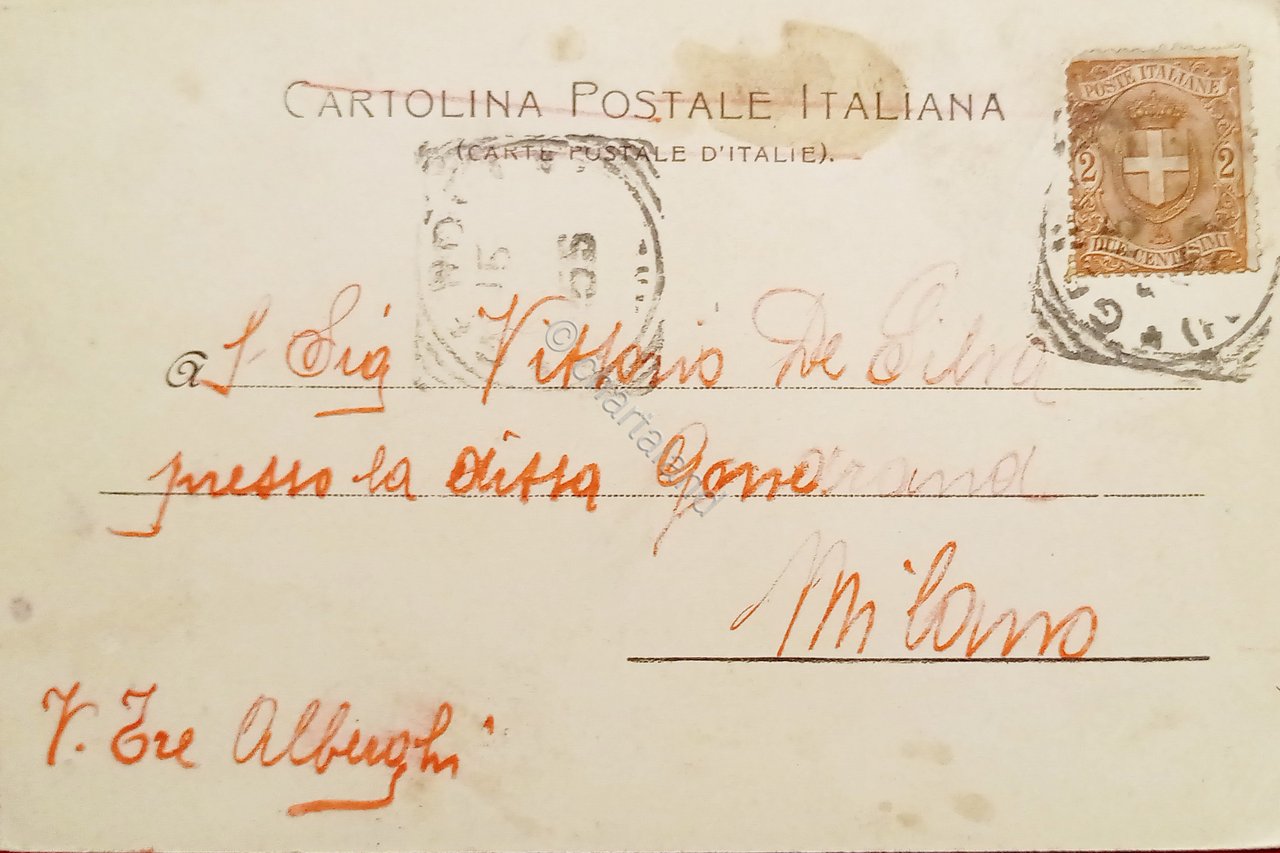 CARTOLINA POSTALE ITALIANA
(CARTE POSTALE D'ITALIE).
POSTE ITALIANE
2 2
DUE CENTESIMI
15
05
a S. Sig Vittorio De Silva
© chartaland
presso la ditta
Milano
V. Tre Alberghi